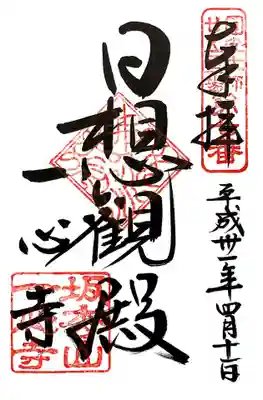 奉拝
平成卅一年四月十一日
日想観殿
一心寺
坂松山
一心寺